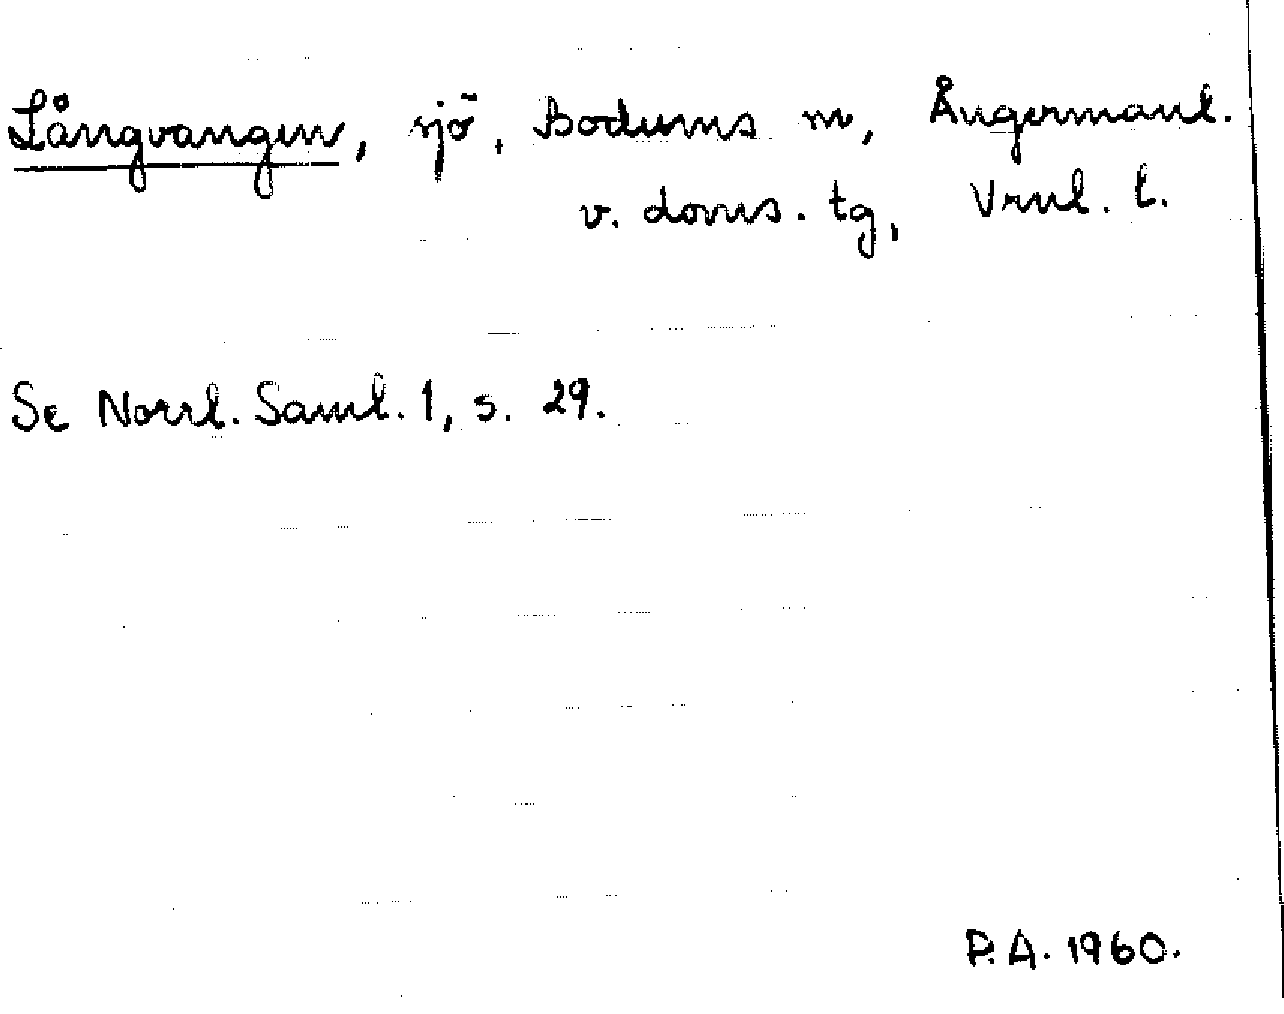 Långvangen, sjö, Bodums sn, Ångermanl.
v. doms. tg, Vrnl. l.
Se Norrl. Saml. 1, s. 29.
P.A. 1960.